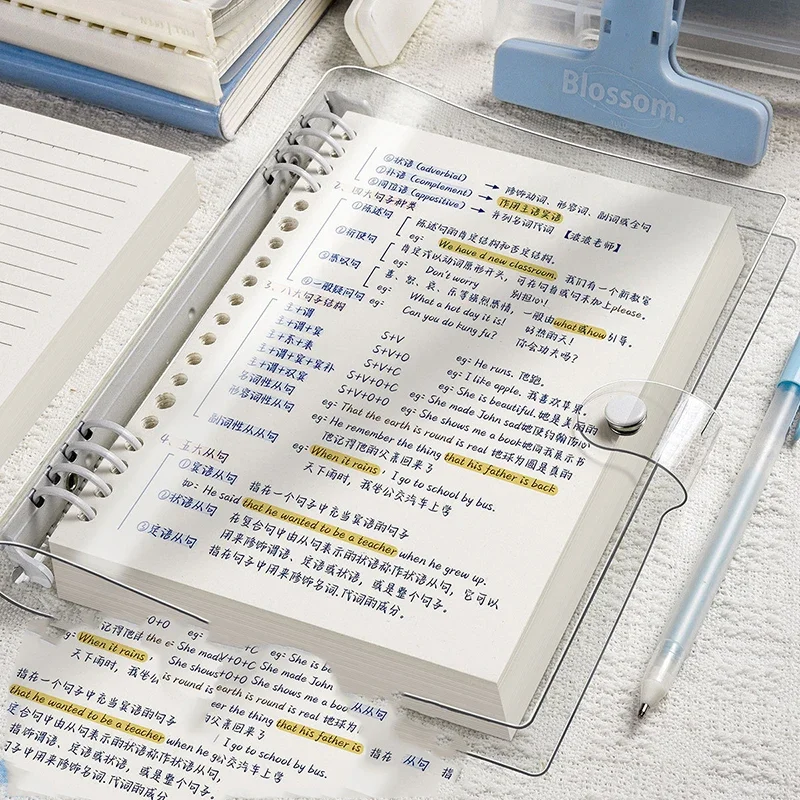 Blossom.
⑥状语 (adverbial) → 修饰动词、形容词、副词或全句
⑦补语 (complement) → 作用主语宾语
⑧同位语 (appositive) → 并列名词代词【波波老师】
2、四大句子种类
①陈述句 陈述句的肯定结构和否定结构.
eg: We have d new classroom. 我们有一个新教室
②祈使句 肯定式以动词原形开头, 可在句首或句末加上please.
eg: Don't worry 别担心!
③感叹句 喜、怒、哀、乐等强烈感情, 一般由what或how引导。
eg: What a hot day it is! 好热的天!
④一般疑问句 eg: Can you do kung fu? 你会功夫吗?
3、八大句子结构
主+谓 S+V eg: He runs. 他跑.
主+谓+宾 S+V+O eg: I like apple. 我喜欢苹果.
主+系+表 S+V+C eg: She is beautiful. 她是美丽的
主+谓+宾+宾补 S+V+O+C eg: She made John sad
主+谓+双宾 S+V+O+O eg: She shows me a book
名词性从句 eg: That the earth is round is real 地球为圆是真的
形容词性从句 eg: He remember the thing that his father is back
他记得他的父亲回来了
副词性从从句 eg: When it rains, I go to school by bus.
天下雨时, 我坐公交汽车上学
4、五大从句
①宾语从句 指在一个句子中充当宾语的句子
如: He said that he wanted to be a teacher when he grew up.
②状语从句 在复合句中由从句表示的状语称作状语从句, 它可以
用来修饰谓语、定语或状语, 或是整个句子.
③定语从句 指在句子中用来修饰名词.代词的成分.
When it rains,
天下雨时, 我坐
指在一个句子中充当宾语的句子
that he wanted to be a teacher when he
修饰谓语、定语或状语, 或是整个句子.
子中用来修饰名词.代词的成分
She shows me a boo
the thing that his father is
父亲回来了
I go to school by bus.
公交汽车上学